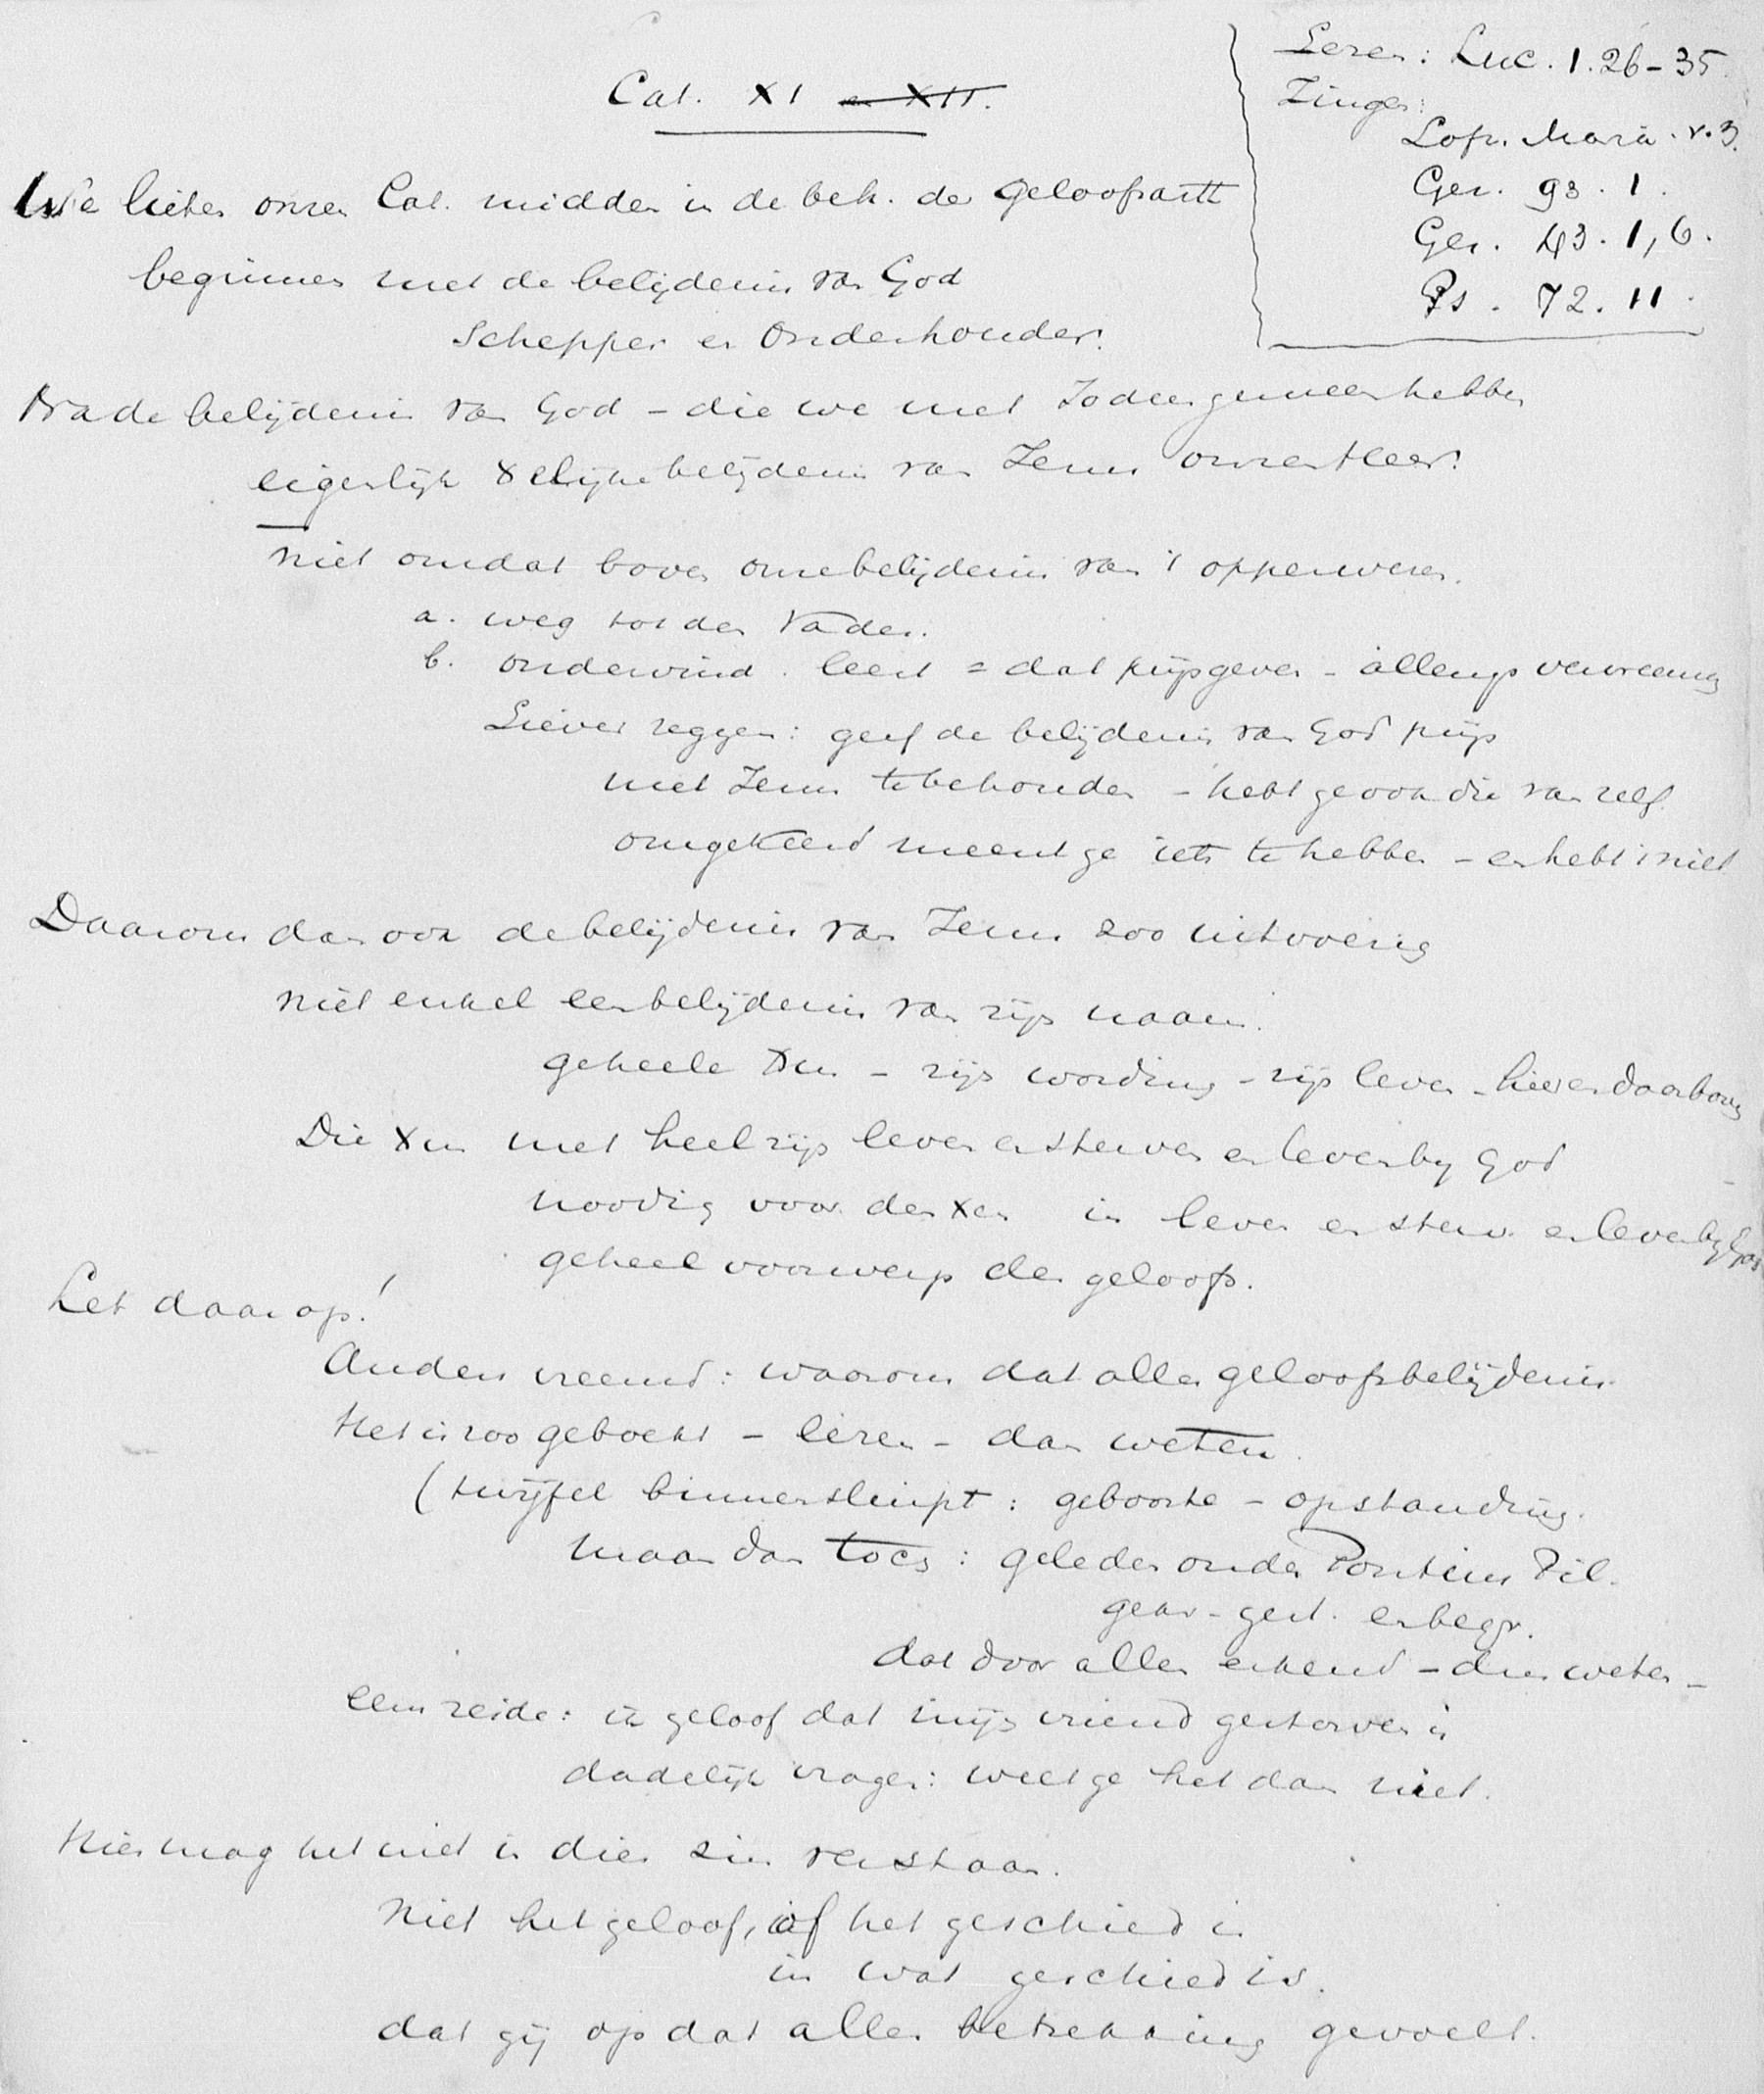 Cat. XI en XII.
Lezen: Luc. 1.26-35.
Zingen:
Lofz. Maria. v.3.
Gez. 93.1.
Gez. 43.1,6.
Ps. 72.11.
We lieten onzen Cat. midden in de beh. der geloofsartt
beginnen met de belijdenis van God
Schepper en Onderhouder.
Na de belijdenis van God - die we met Joden gemeen hebben
eigenlijk Xelijke belijdenis van Jezus onzen Heer.
niet omdat boven onze belijdenis van 't opperwezen.
a. weg tot den Vader.
b. ondervind. leert = dat prijsgeven - allengs
Liever zeggen: geef de belijdenis van God prijs
met Jezus te behouden - hebt ge ook die van zelf.
omgekeerd meent ge iets te hebben - en hebt 't niet
Daarom dan ook de belijdenis van Jezus zoo uitvoerig
niet enkel een belijdenis van zijn naam.
geheele Xus - zijn wording - zijn leven - hier en daarboven
Die Xus met heel zijn leven en sterven en leven bij God
noodig voor den Xen in leven en sterv. en leven bij God
geheel voorwerp des geloofs.
Let daar op!
Anders vreemd: waarom dat alles geloofsbelijdenis.
Het is zoo geboekt - lezen - dan weten.
(twijfel binnensluipt: geboorte - opstanding.
maar dan toch: geleden onder Pontius Pil.
gekr - gest. en begr.
dat door allen erkend - dus weten -
iem zeide: ik geloof dat mijn vriend gestorven is
dadelijk vragen: weet ge het dan niet.
Hier mag het niet in dien zin verstaan.
Niet het geloof, of het geschied is
in wat geschied is.
dat gij op dat alles betrekking gevoelt.